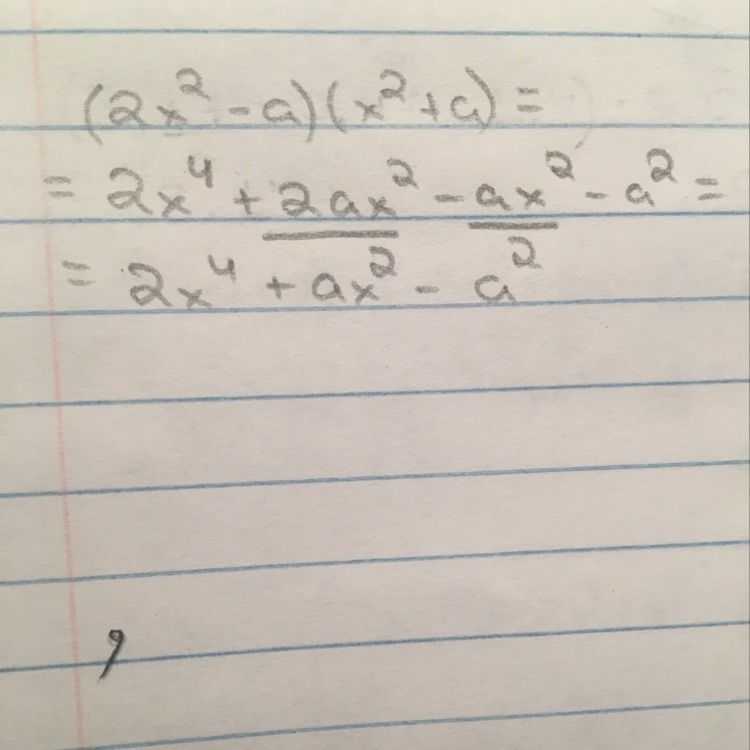 (2x² - a)(x² + a) =
= 2x⁴ + 2ax² - ax² - a² =
= 2x⁴ + ax² - a²
,